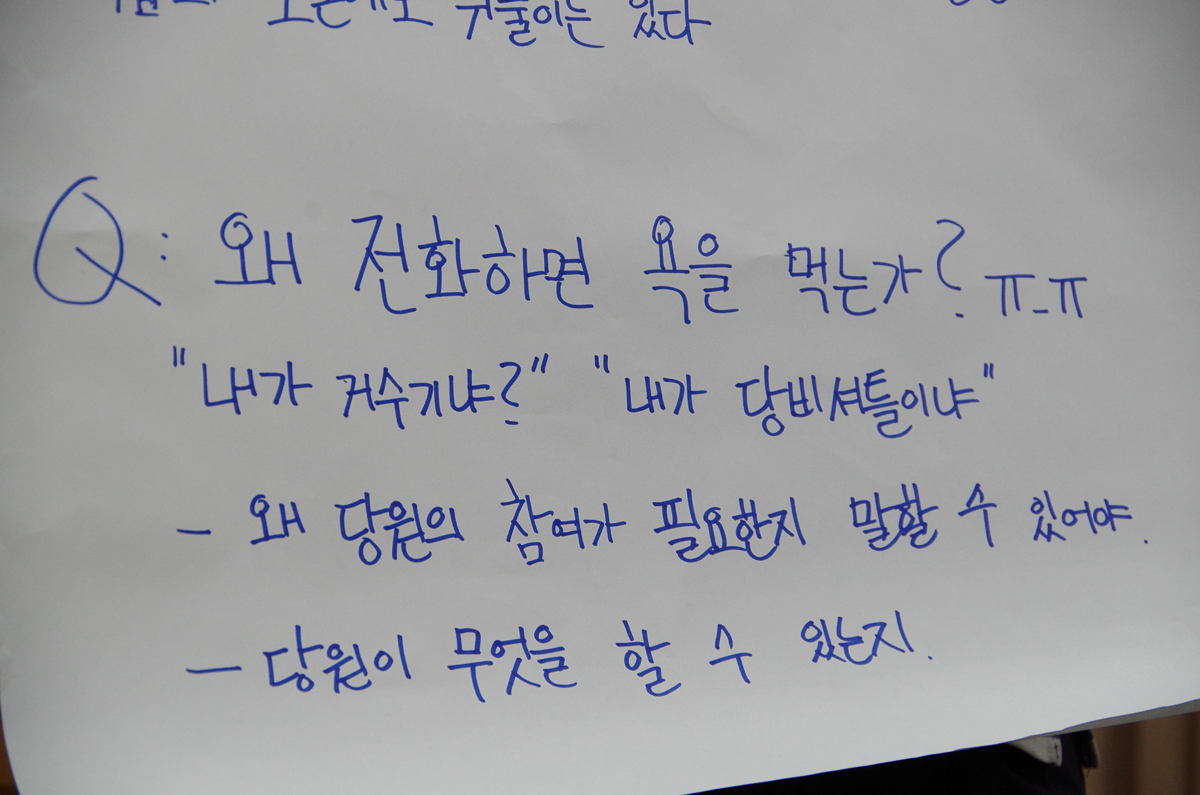 있다
Q: 왜 전화하면 욕을 먹는가? ㅠ_ㅠ
"내가 거수기냐?" "내가 당비셔틀이냐"
- 왜 당원의 참여가 필요한지 말할 수 있어야.
- 당원이 무엇을 할 수 있는지.